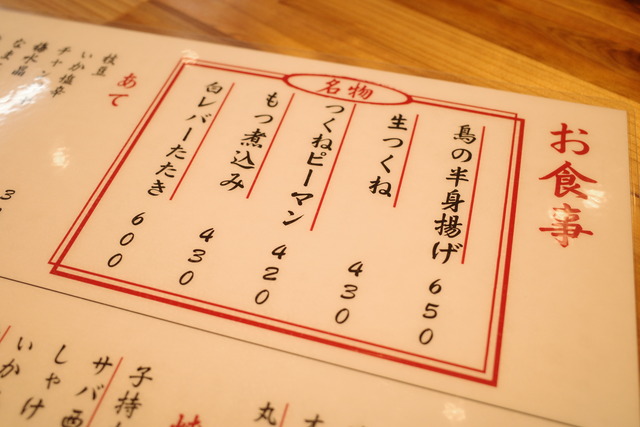 お食事
名物
鳥の半身揚げ 650
生つくね 430
つくねピーマン 420
もつ煮込み 430
白レバーたたき 600
あて
枝豆
いか塩辛
チャン
梅水晶
丸
子持
サバ西
しゃけ
いか